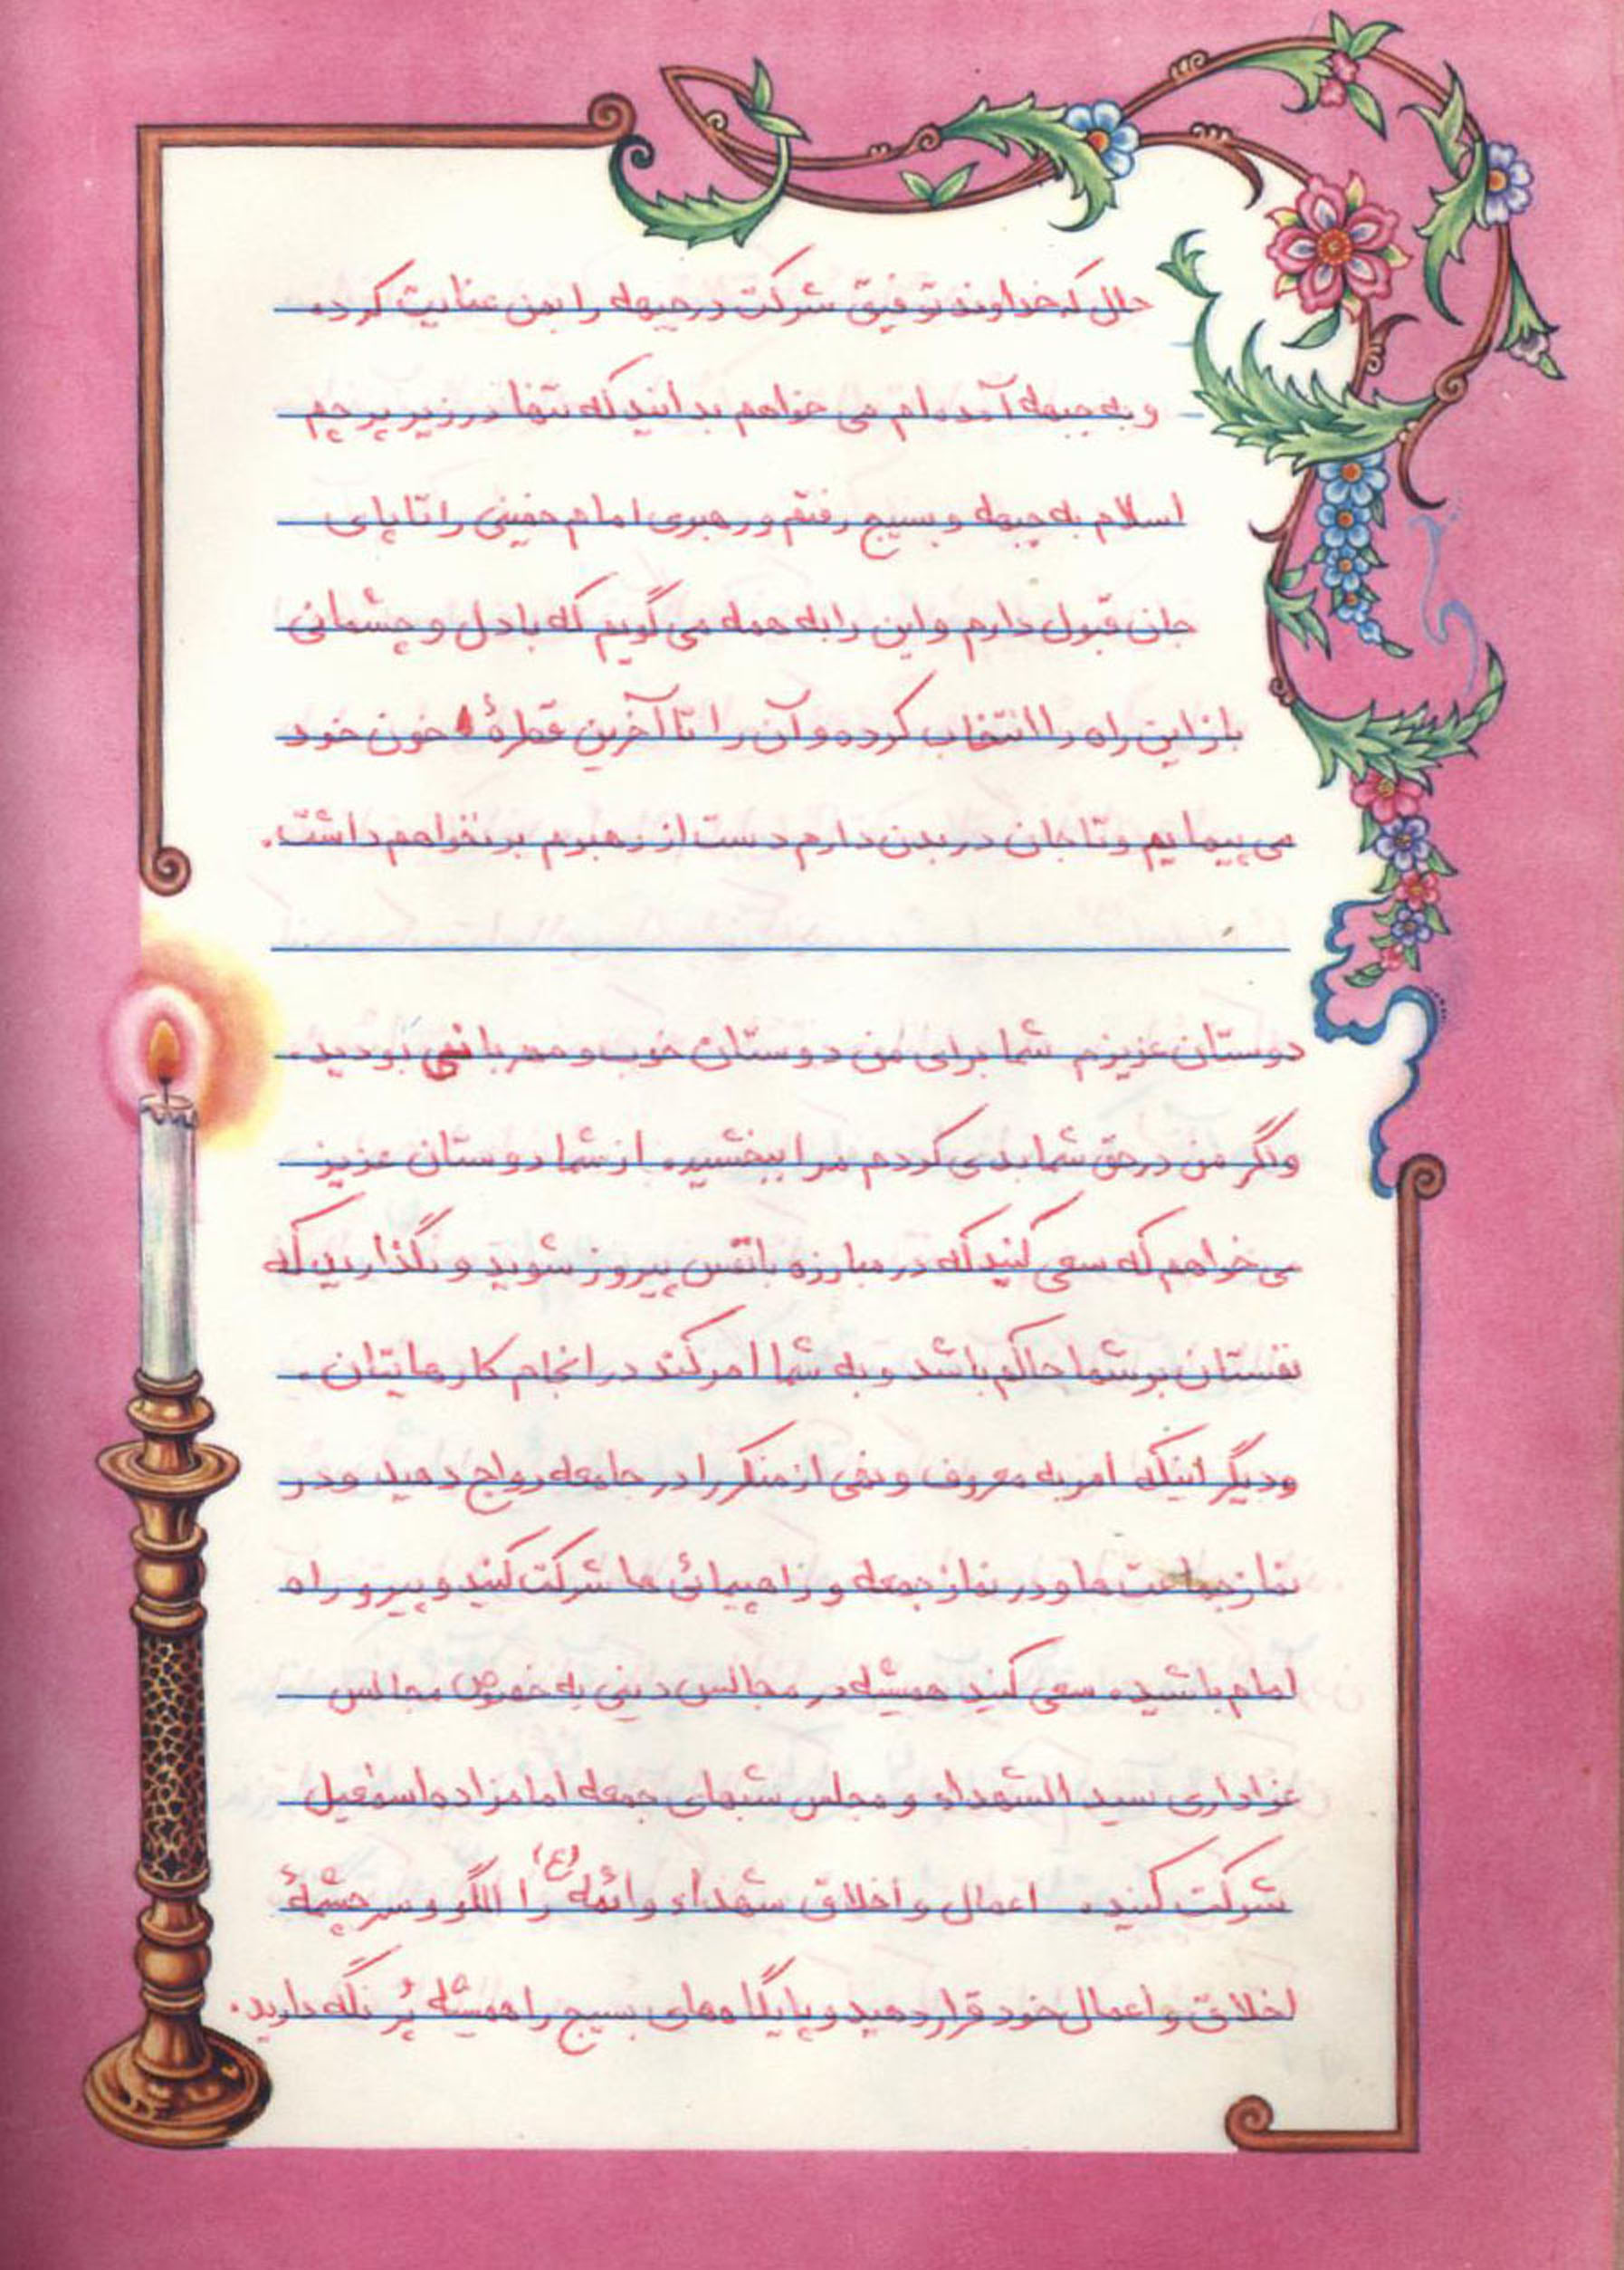 حال که خداوند توفیق شرکت در جبهه را بمن عنایت کرده
و به جبهه آمده‌ام می خواهم بدانید که تنها در زیر پرچم
اسلام به جبهه و بسیج رفتم و رهبری امام خمینی را تا پای
جان قبول دارم و این را به همه می گویم که با دل و چشمانی
باز این راه را انتخاب کرده و آن را تا آخرین قطرهٔ خون خود
می پیمایم و تا جان در بدن دارم دست از رهبرم برنخواهم داشت.
دوستان عزیزم شما برای من دوستان خوب و مهربانی بودید.
وگر من در حق شما بدی کردم مرا ببخشید. از شما دوستان عزیز
می خواهم که سعی کنید که در مبارزه با نفس پیروز شوید و نگذارید که
نفستان بر شما حاکم باشد و به شما امر کند در انجام کارهایتان.
و دیگر اینکه امر به معروف و نهی از منکر را در جامعه رواج دهید و در
نماز جماعت ها و در نماز جمعه و راهپیمائی ها شرکت کنید و پیرو راه
امام باشید. سعی کنید همیشه در مجالس دینی به خصوص مجالس
عزاداری سید الشهداء و مجلس شبهای جمعه امامزاده اسمعیل
شرکت کنید. اعمال و اخلاق شهداء و ائمه (ع) را الگو و سرچشمهٔ
اخلاق و اعمال خود قرار دهید و پایگاههای بسیج را همیشه پُر نگه دارید.